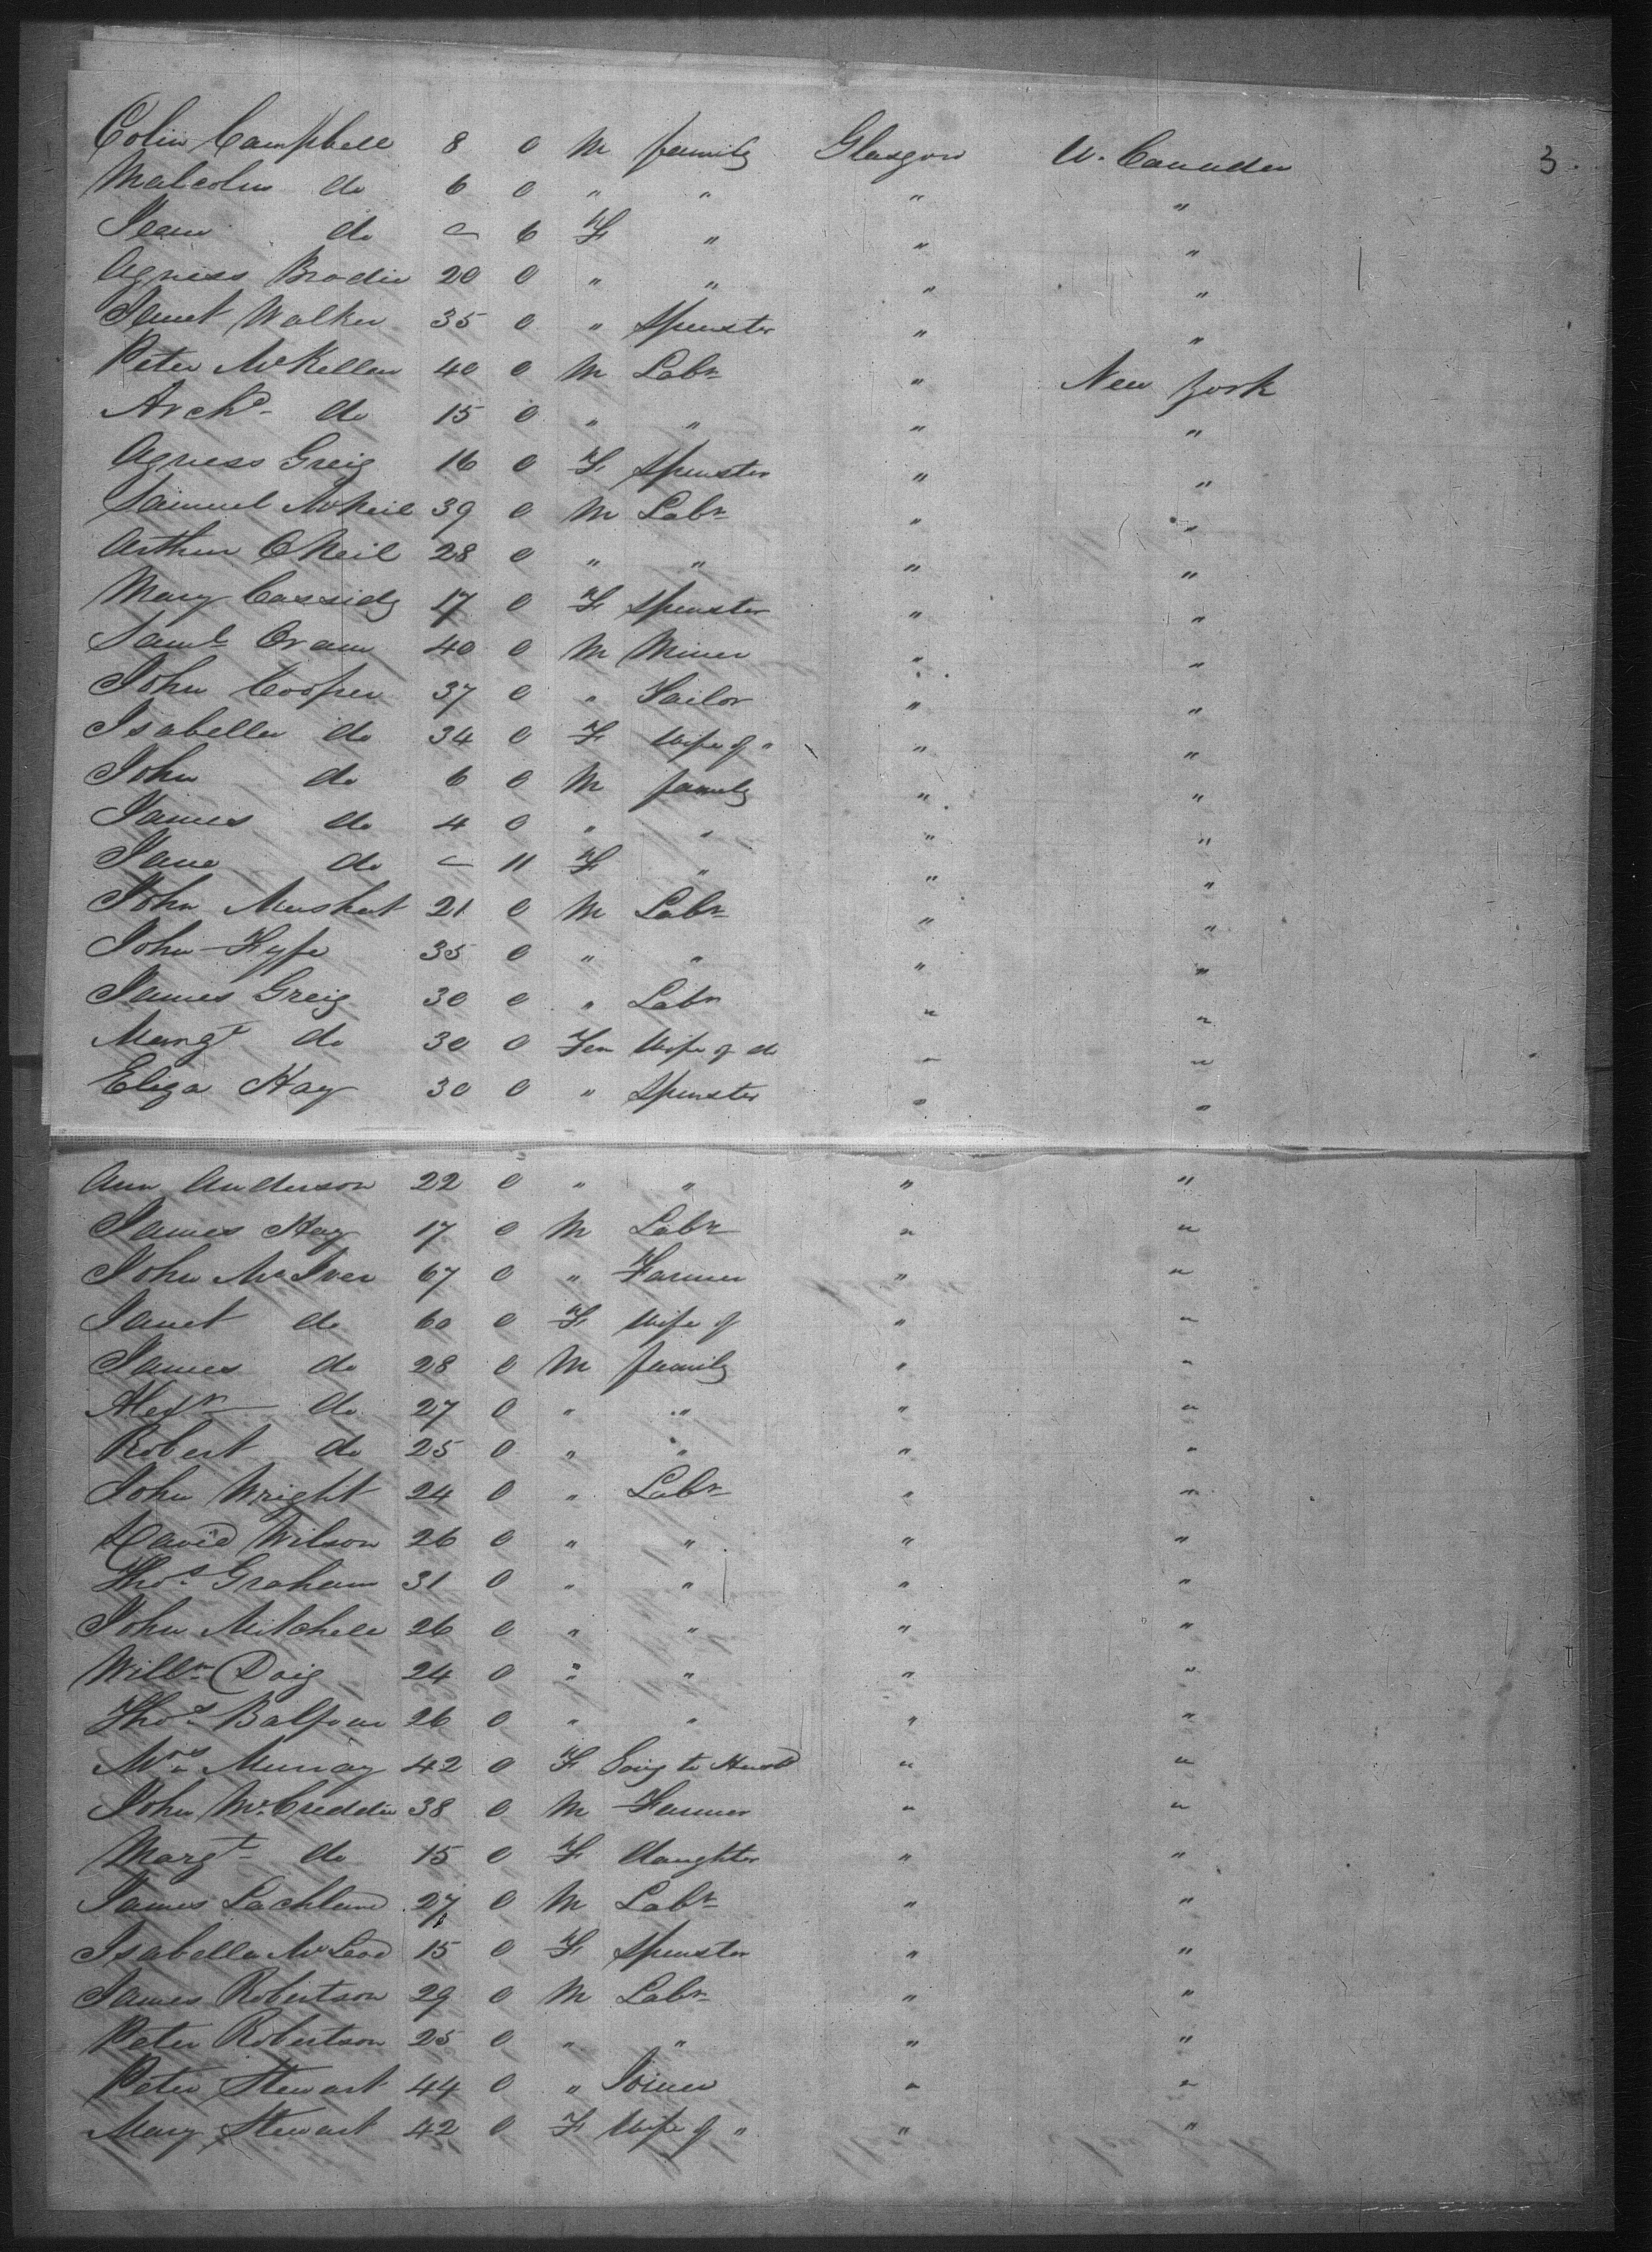 3.
Colin Campbell 8 0 M family Glasgow U. Canada
Malcolm do 6 0 " " " "
Jean do - 6 F " " "
Agness Brodie 20 0 " " " "
Janet Walker 35 0 " Spinster " "
Peter McKellar 40 0 M Labr " New York
Archd do 15 0 " " " "
Agness Greig 16 0 F Spinster " "
Samuel McNeil 39 0 M Labr " "
Arthur ONeil 28 0 " " " "
Mary Cassidy 17 0 F Spinster " "
Saml Oram 40 0 M Miner " "
John Cooper 37 0 " Sailor " "
Isabella do 34 0 F Wife of " " "
John do 6 0 M family " "
James do 4 0 " " " "
Jane do - 11 F " " "
John Mushat 21 0 M Labr " "
John Fyfe 35 0 " " " "
James Greig 30 0 " Labr " "
Margt do 30 0 Fem Wife of do " "
Eliza Hay 30 0 " Spinster " "
Ann Anderson 22 0 " " " "
James Hay 17 0 M Labr " "
John McIver 67 0 " Farmer " "
Janet do 60 0 F Wife of " "
James do 28 0 M family " "
Alexr do 27 0 " " " "
Robert do 25 0 " " " "
John Wright 24 0 " Labr " "
David Wilson 26 0 " " " "
Thos Graham 31 0 " " " "
John Mitchell 26 0 " " " "
Willm Doig 24 0 " " " "
Thos Balfour 26 0 " " " "
Mrs Murray 42 0 F Going to Husbd " "
John McCreddie 38 0 M Farmer " "
Margt do 15 0 F daughter " "
James Lachland 27 0 M Labr " "
Isabella McLeod 15 0 F Spinster " "
James Robertson 29 0 M Labr " "
Peter Robertson 25 0 " " " "
Peter Stewart 44 0 " Joiner " "
Mary Stewart 42 0 F Wife of " " "